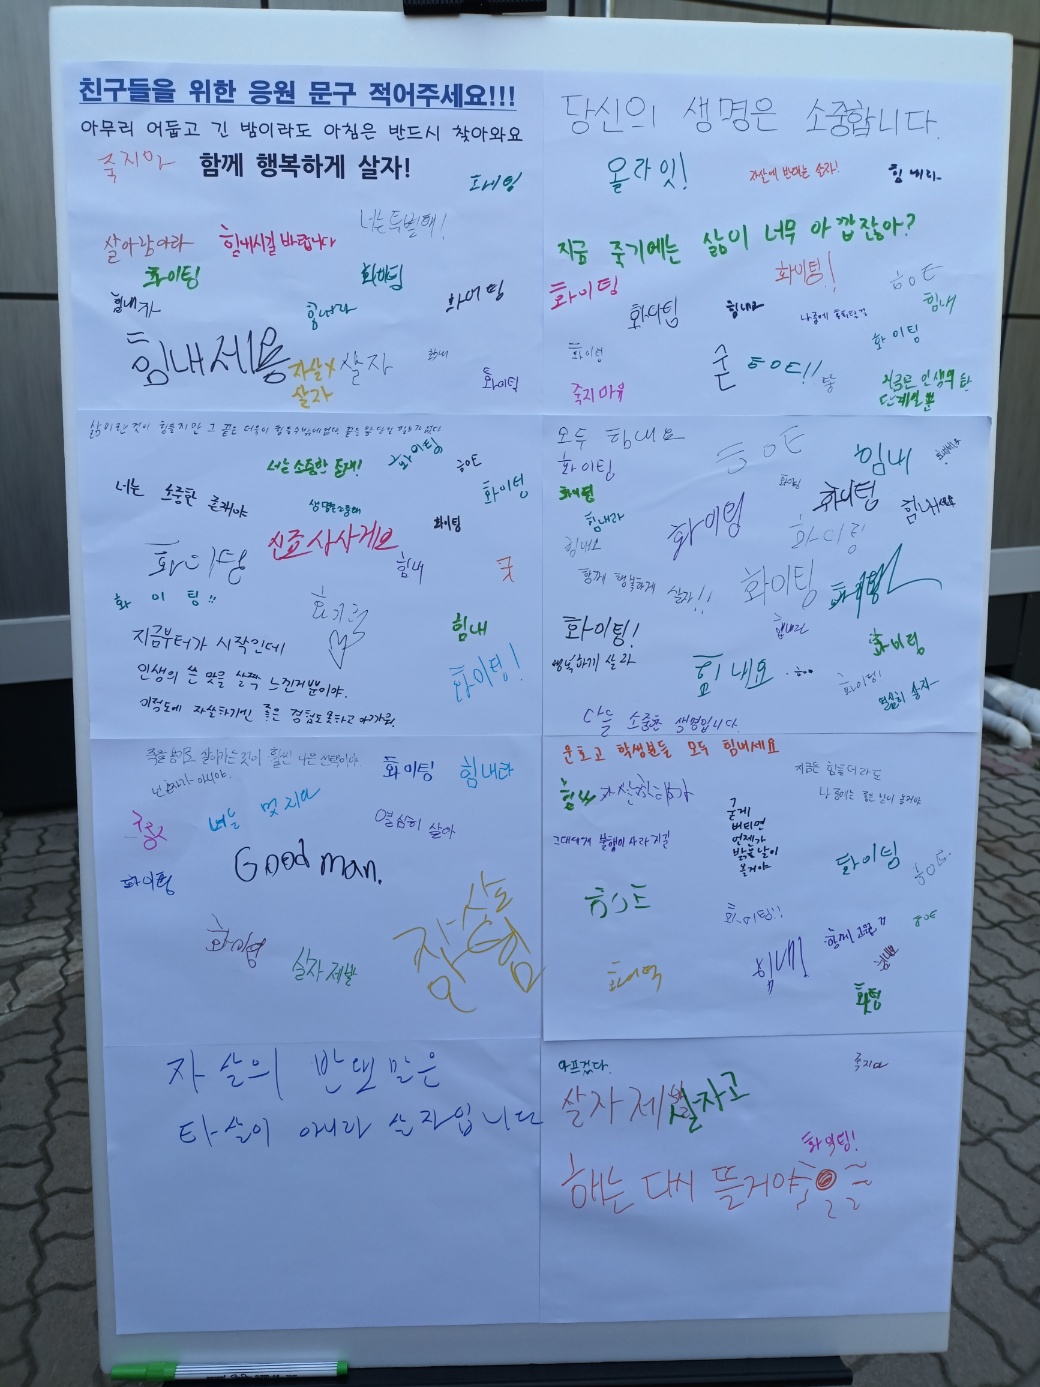 친구들을 위한 응원 문구 적어주세요!!!
아무리 어둡고 긴 밤이라도 아침은 반드시 찾아와요
죽지마
함께 행복하게 살자!
너는 특별해!
살아남아라
힘내시길 바랍니다
화이팅
화이팅
힘내자
힘내라
화이팅
힘내세용
자살X
살자
살자
화이팅
당신의 생명은 소중합니다.
올라잇!
자살에 반대는 살자!
힘내라
지금 죽기에는 삶이 너무 아깝잖아?
화이팅!
화이팅
화이팅
힘내라
힘내
화이팅
화이팅
죽지마유
지금은 인생의 한
단계일 뿐
너는 소중한 존재!
화이팅
너는 소중한 존재야
화이팅
화이팅
화이팅
힘내
굿
화이팅!!
힘내
지금부터가 시작인데
인생의 쓴 맛을 살짝 느낀거뿐이야.
이정도에 자살하기엔 좋은 경험도 못하고 아까움.
화이팅!
모두 힘내요
화이팅
힘내
화이팅
화이팅
힘내라
화이팅
화이팅
힘내세요
힘내요
함께 행복하게 살자!!
화이팅
화이팅
화이팅!
힘내라
화이팅
행복하게 살라
힘내요
화이팅!
열심히 살자
다들 소중한 생명입니다.
죽을 용기로 살아가는 것이 훨씬 나은 선택이야.
넌 혼자가 아니야.
화이팅
힘내라
너는 멋지다
열심히 살아
Good man.
화이팅
화이팅
살자 제발
운호고 학생분들 모두 힘내세요
지금은 힘들더라도
나중에는 좋은 일이 올거야
굳게
버티면
언젠가
밝은 날이
올거야
화이팅
화이팅!!
힘내!
함께 고고
화팅
자살의 반댓말은
타살이 아니라 살자입니다
아프겠다.
죽지마
살자 제발
살자고
화이팅!
해는 다시 뜰거야